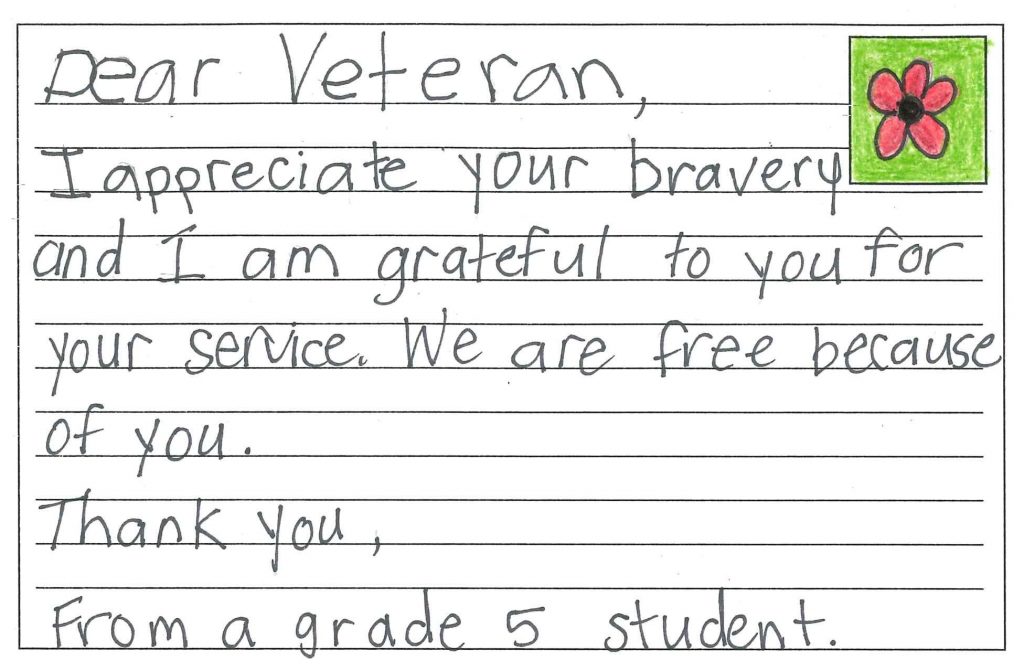 Dear Veteran,
I appreciate your bravery
and I am grateful to you for
your service. We are free because
of you.
Thank you,
From a grade 5 student.